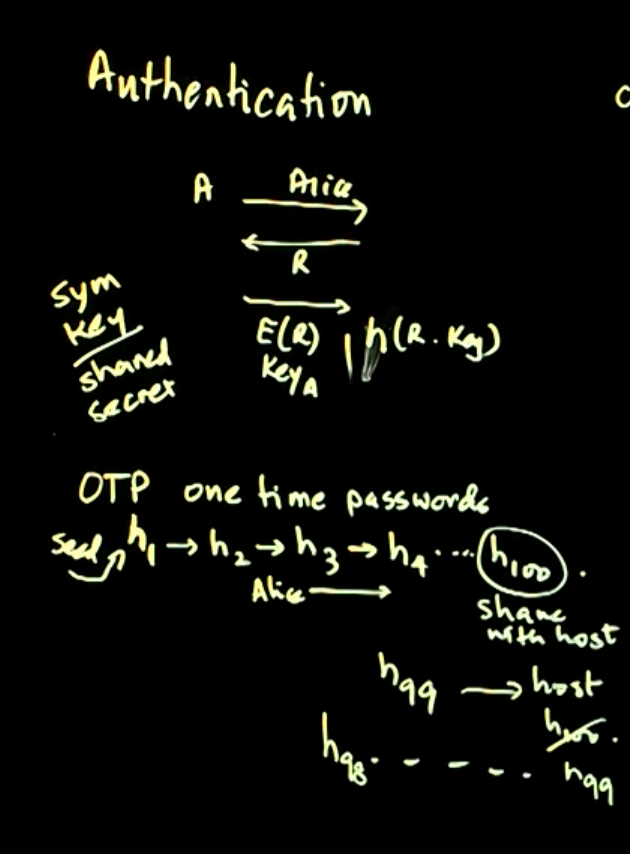 Authentication
A Alice
R
Sym
Key
shared
secret
E(R) | h(R . Key)
Key_A
OTP one time passwords
seed h₁ → h₂ → h₃ → h₄ .... h₁₀₀ .
Alice →
share
with host
h₉₉ → host
h₁₀₀ .
h₉₈ . - - - . h₉₉